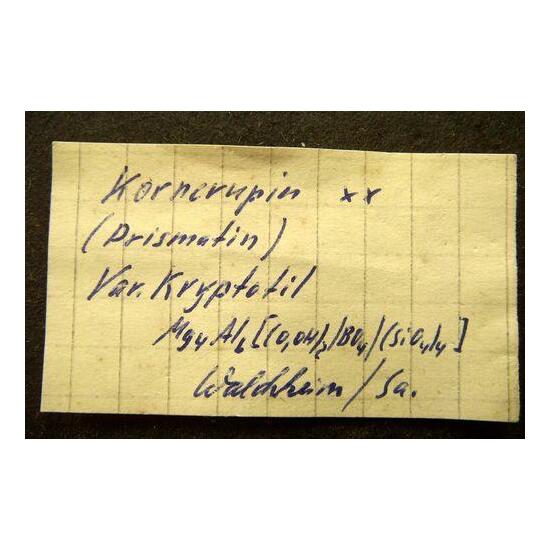 Kornerupin xx
(Prismatin)
Var. Kryptotil
Mg4Al6[(O,OH)2/BO4/(SiO4)4]
Waldheim/Sa.